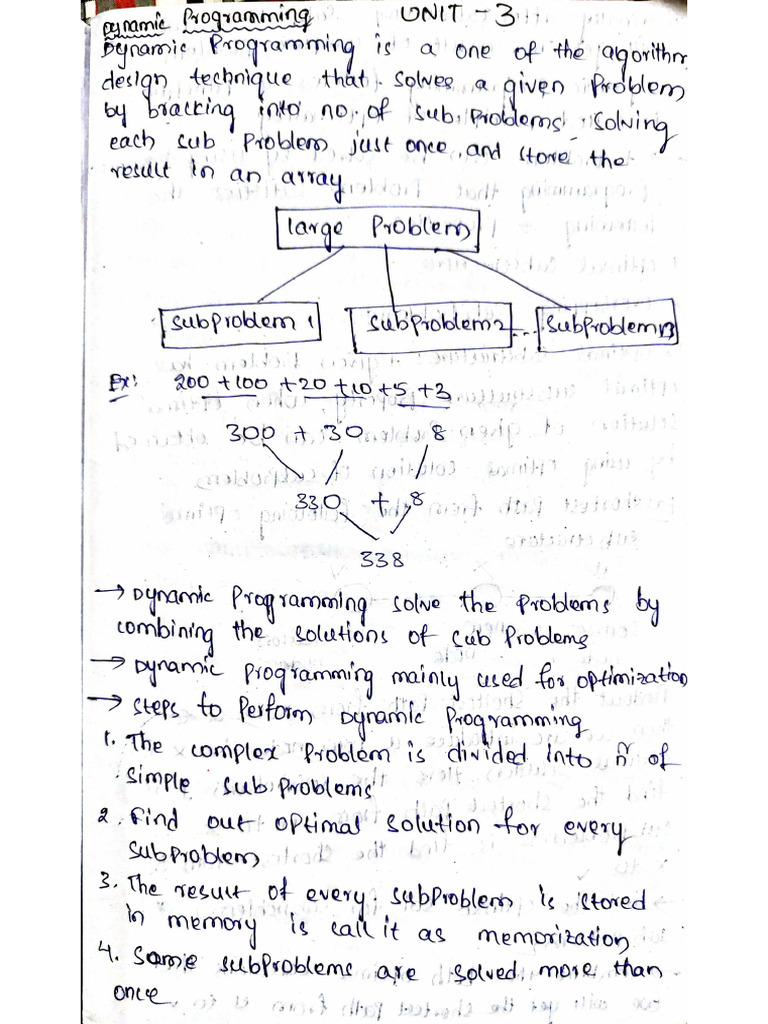 Dynamic Programming UNIT - 3
Dynamic Programming is a one of the algorithm
design technique that solves a given Problem
by bracking into no. of Sub Problems, Solving
each sub Problem just once, and store the
result in an array
large Problem
Subproblem 1 SubProblem 2 ... SubProblem n
Ex: 200 + 100 + 20 + 10 + 5 + 3
300 + 30 8
330 + 8
338
→ Dynamic Programming solve the Problems by
combining the solutions of sub Problems
→ Dynamic Programming mainly used for optimization
→ Steps to Perform Dynamic Programming
1. The complex Problem is divided into n of
simple sub Problems
2. Find out optimal solution for every
subproblem
3. The result of every subproblem is stored
in memory is call it as memorization
4. Same subproblems are solved more than
once